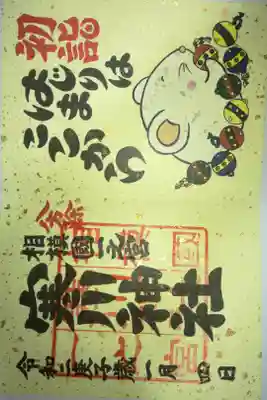 初詣
はじまりは
ここから
相模國一之宮
寒川神社
令和二庚子歳一月四日